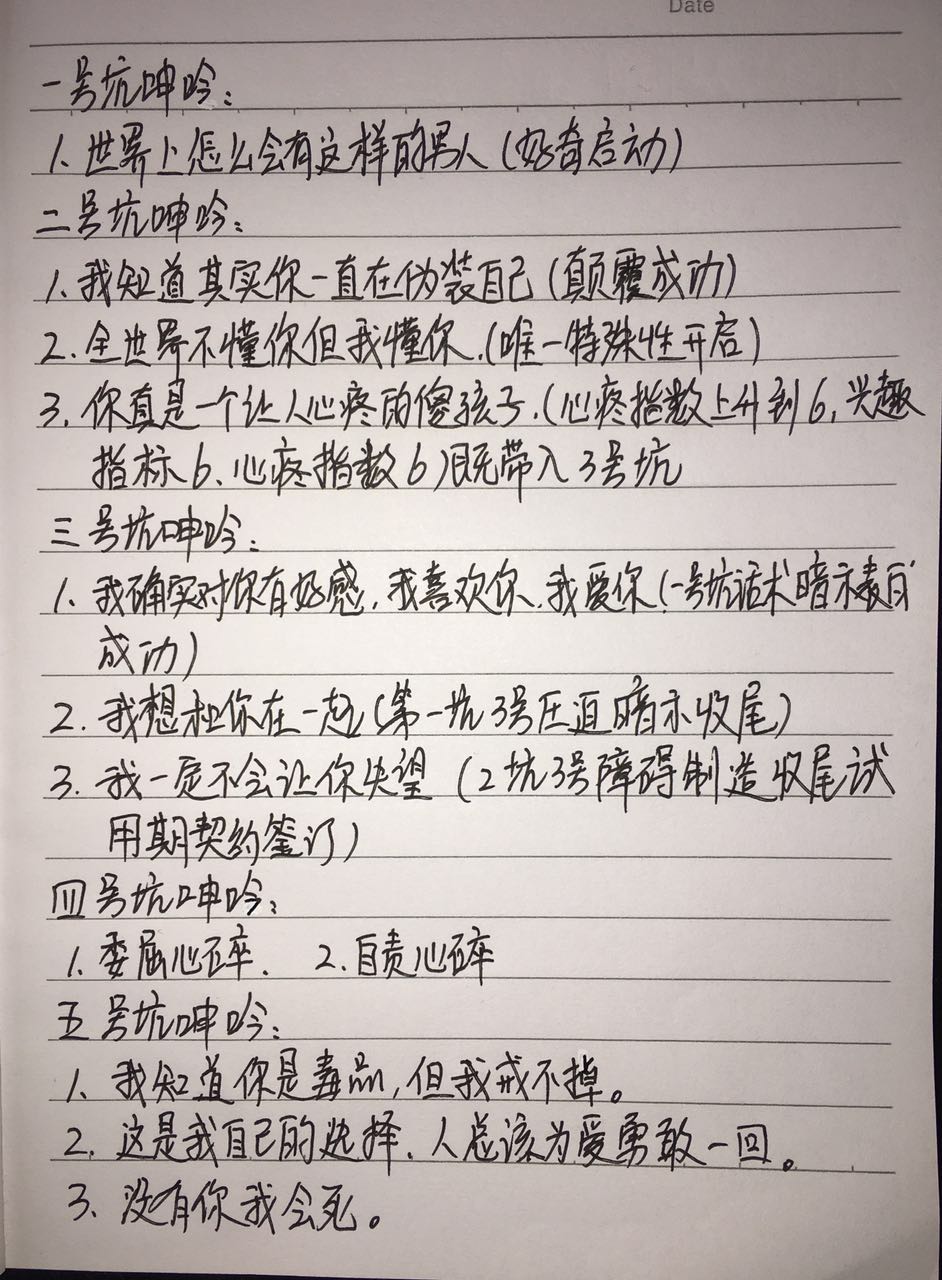 Date
一号坑呻吟：
1、世界上怎么会有这样的男人（好奇启动）
二号坑呻吟：
1、我知道其实你一直在伪装自己（颠覆成功）
2、全世界不懂你但我懂你、（唯一特殊性开启）
3、你真是一个让人心疼的傻孩子、（心疼指数上升到6，兴趣
指标6、心疼指数6）既带入3号坑
三号坑呻吟：
1、我确实对你有好感，我喜欢你、我爱你（一号坑话术暗示表白
成功）
2、我想和你在一起（第一坑3号压迫暗示收尾）
3、我一定不会让你失望（2坑3号障碍制造收尾试
用期契约签订）
四号坑呻吟：
1、委屈心碎、 2、自责心碎
五号坑呻吟：
1、我知道你是毒品，但我戒不掉。
2、这是我自己的选择、人总该为爱勇敢一回。
3、没有你我会死。